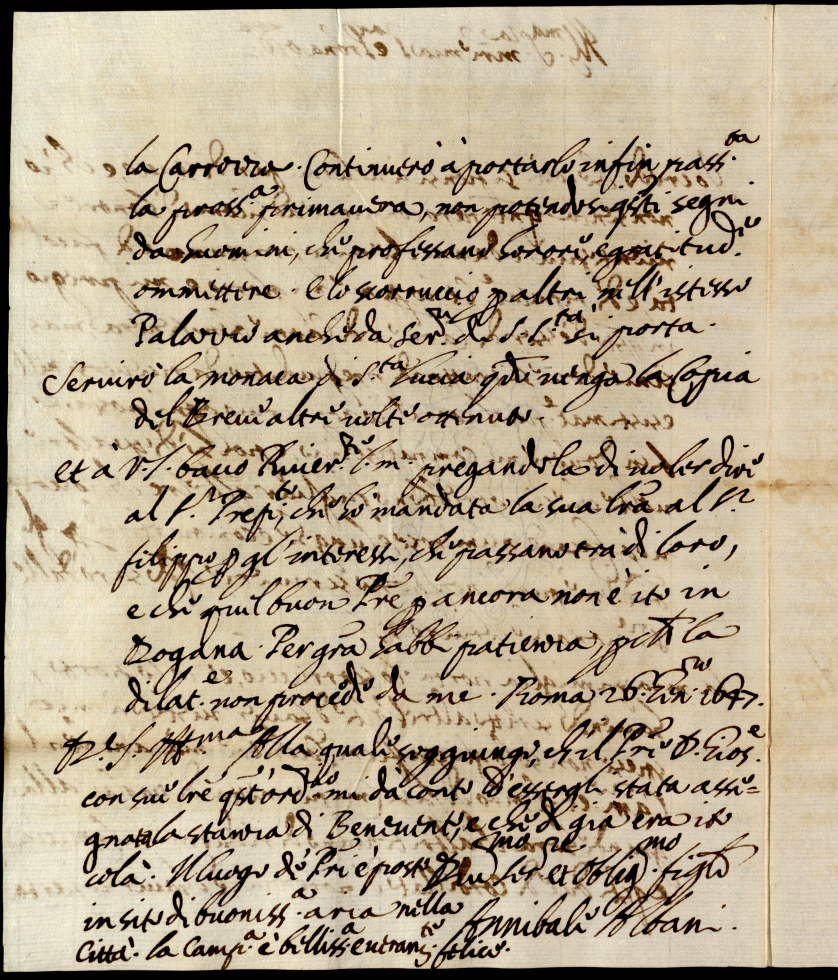 la Carrozza. Continuerò à portarlo infin passta
la prossa primauera, non potendosi qsti segni
da huomini, che professano honore, e gratitudne
ommettere. e lo scorruccio p altri nell'istesso
Palazzo anche da Serri di S. Sta si porta.
Seruirò la monaca di Sta Lucia qdo uenga la Copia
del Breue altre uolte ottenuto.
et à V.S. bacio Riuerte l.m. pregandola di uoler dire
al Sr Prefto, che hò mandata la sua lra al Sr
filippo p gl'interessi, che passano trà di loro,
e che quel buon Pre p ancora non è ito in
Dogana. Per gra habb patienza, pche la
dilate non procede da me. Roma 26. Genro 1647.
Di V.S. Illma Alla quale soggiungo, che il Pre D. Gios.e
con sue lre qst'ordro mi dà conto d'essergli stata asse=
gnata la stanza di Beneuento, e che di già era ito
colà. Il luogo de Pri è posto Diumo Serre et Obligmo figlo
in sito di buonissa aria nella Annibale Albani.
Città. la Campa è bellissa entrante felice.